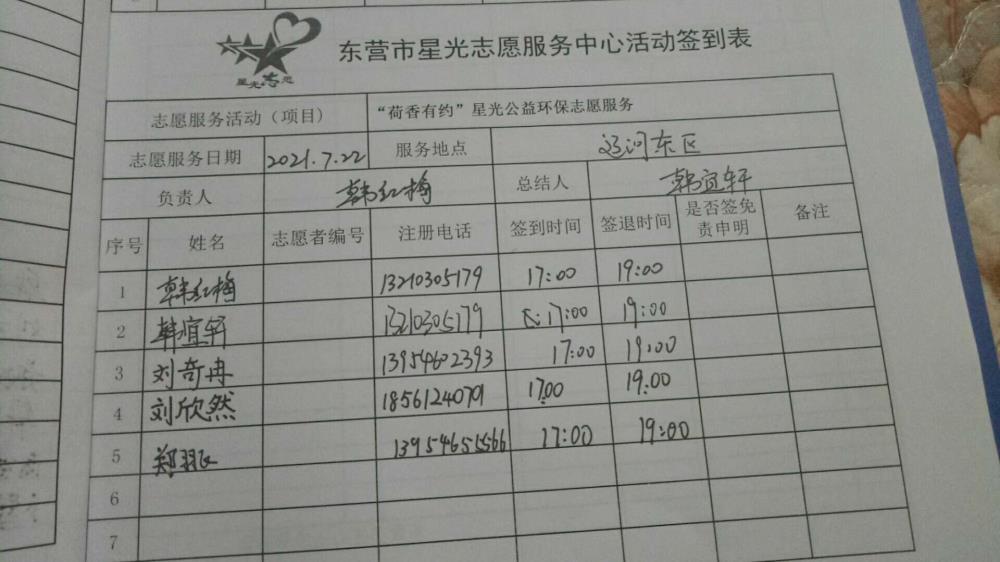 东营市星光志愿服务中心活动签到表
星光志愿
志愿服务活动（项目） “荷香有约”星光公益环保志愿服务
志愿服务日期 2021.7.22 服务地点 运河东区
负责人 韩红梅 总结人 韩宜轩
序号 姓名 志愿者编号 注册电话 签到时间 签退时间 是否签免责申明 备注
1 韩红梅 13210305179 17:00 19:00
2 韩宜轩 13210305179 17:00 19:00
3 刘奇冉 13954602393 17:00 19:00
4 刘欣然 18561240701 17:00 19:00
5 郑 13954655566 17:00 19:00
6
7